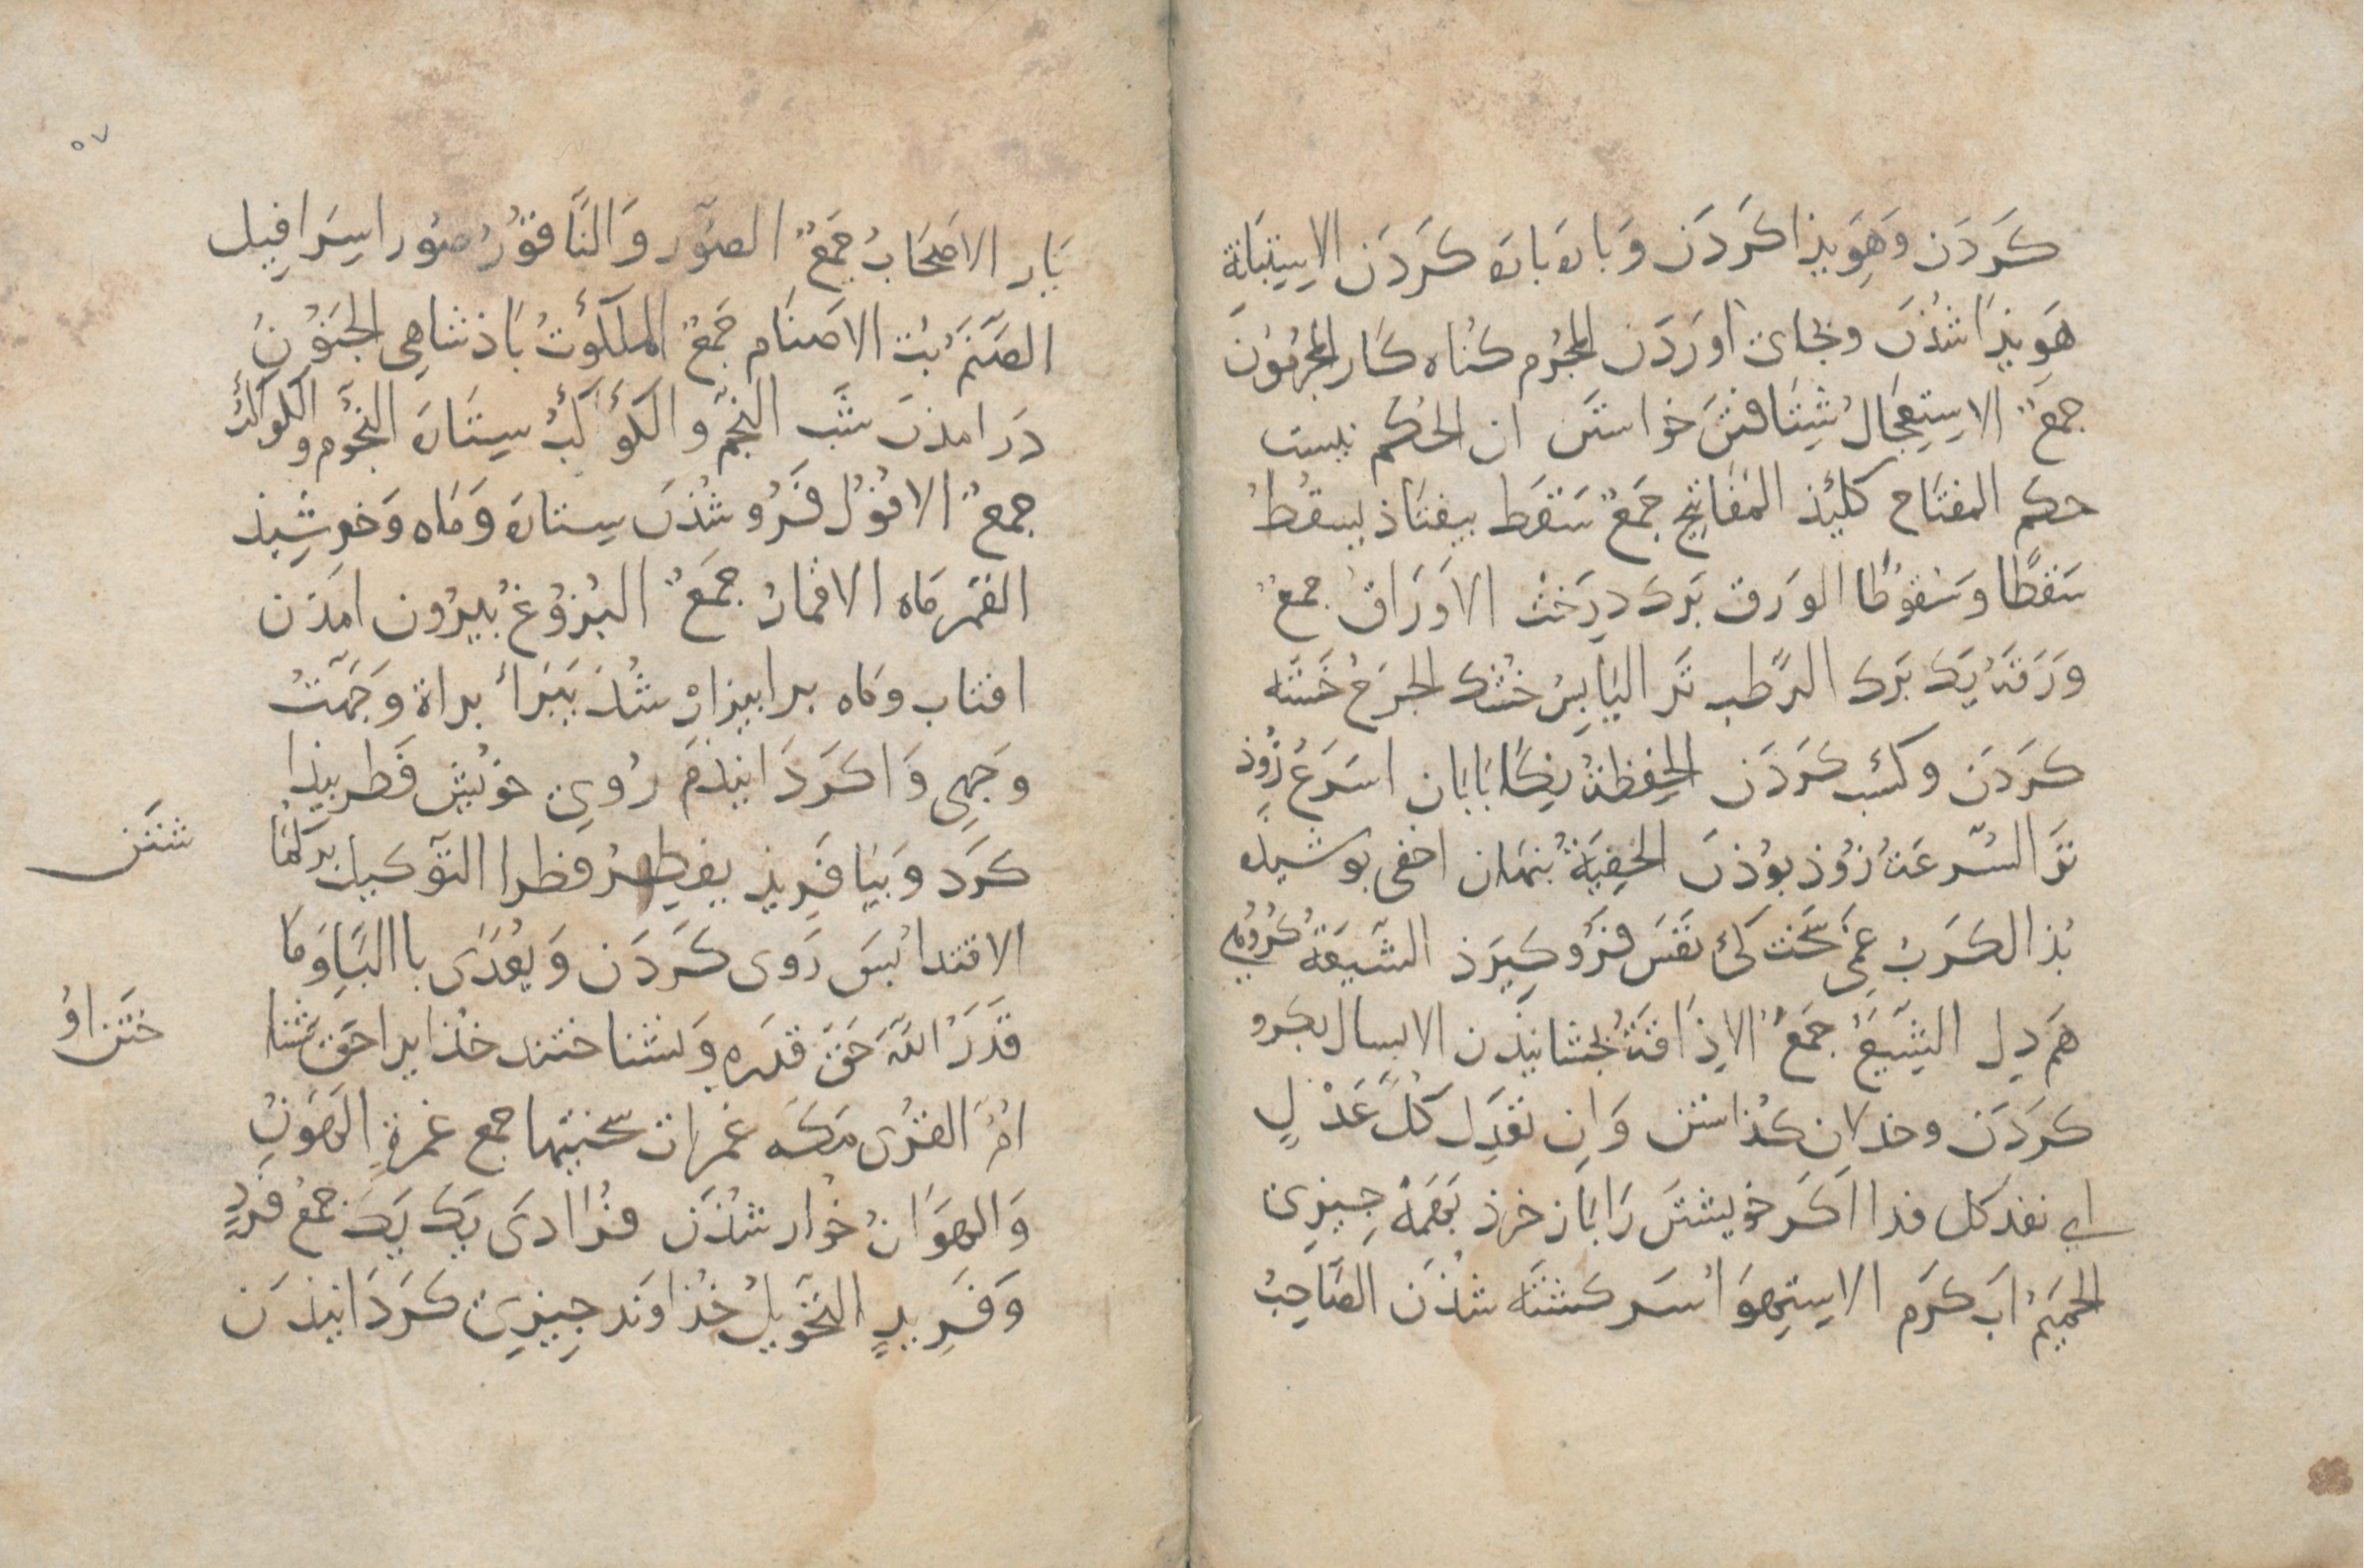 كَردَن وَهِوَيذا كَردَن وَبارَه بارَه كَردَن الاِستِبَانَة
هَوِيذَا شُذَن وبجاى اورَدَن المجُرم كناه كار المجُرِمُون
جمَعٌ الاِستِعجَالُ شِتَافتَن خواستَن ان الحُكم نيست
حكم المفتَاح كليُذ المَفَاتِيح جَمعٌ سَقَط بيفتَاذ يسقُطُ
سَقطًا وسَقوُطًا الورَق بَرك دِرَخت الاَورَاقُ جمعٌ
وَرَقَةٌ يَك بَرك الرَّطب تَر اليَابِسُ خُشك الجَرحُ خَستَه
كردَن وكسُب كَردَن الحَفِظَة نِكاَبَانان اسَرعُ زُوذ
تَر السُّرعَةُ زُوذ بوُذن الخُفِيَةُ بُنهان اخفى بوشيذه
بُذ الكَربُ غَمى سَخت كى نفَس فرَو كيرَذ الشَّيعَةُ كُرُوهى
هَم دِل الشِّيَعُ جَمَعٌ الاِذَاقَةُ بجشانيذن الابسال بكرو
كردَن وخذلان كذاشتن وَاِن تعدِل كُلَّ عَدْلٍ
اي تفد كل فدا اكَر خويشتَن رَا باَز خرذ بهَمَه جِيزى
الحَميمُ اَب كَرم الاِستِهوَا سَر كَشتَه شذَن الصَّاحِبُ
يَار الاصَحَابُ جَمَعٌ الصّوُر وَالنَّاقوُرُ صوُر اسِرَافِيل
الصَّنَمُ بُت الاصنَام جَمَعٌ المَلكَوُتُ باَذشَاهى الجنَوُنُ
دَر امذن شَب النَّجمُ والكَوكَبُ سِتارَه النَّجُوم والكواكبُ
جمعٌ الافوُلُ فَرُو شُذن ستارَه وَماَه وَخورشِيذ
القمَر مَاه الاقمارُ جمَعٌ البُزوُغُ بيرُون امَذن
افتاب وماَه برا بيزار شُذ يَبرَأُ براةً وَجَّهتُ
وَجهِى وَاكَردَانيذَم رُوىِ خوَيش فَطر بيذا
كرَد وَبيَافَريذ يفطِرُ فطرا التّوَكيل بركمُا
شتَن
الاقتدا بُسَ رَوى كَردَن وَيُعَدَّى باالبَاوَما
قَدَرُ اللّهَ حَقَّ قدرِه وَنشناختند خذا يرا حَق شنا
ختَن اوُ
امُّ القُرى مَكه غمراَت سَختيها جمع غمرةٍ الهَوُنُ
وَالهوَانُ خوُار شذَن فرُادَى يَك يَك جمَعُ فَردٍ
وَفَرِيدٍ التَّخوِيلُ خُذاوَند جِيزى كَردَانيذَن
۵۷